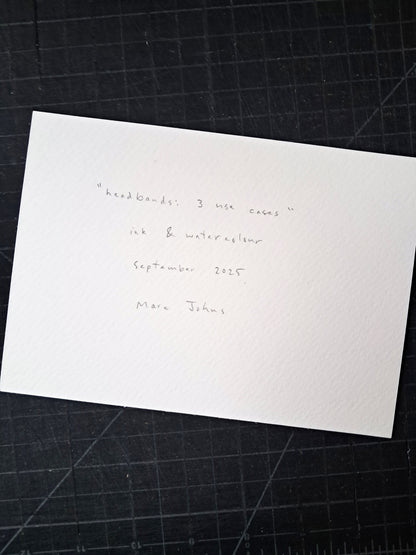 "headbands: 3 use cases"
ink & watercolour
September 2025
Marc Johns